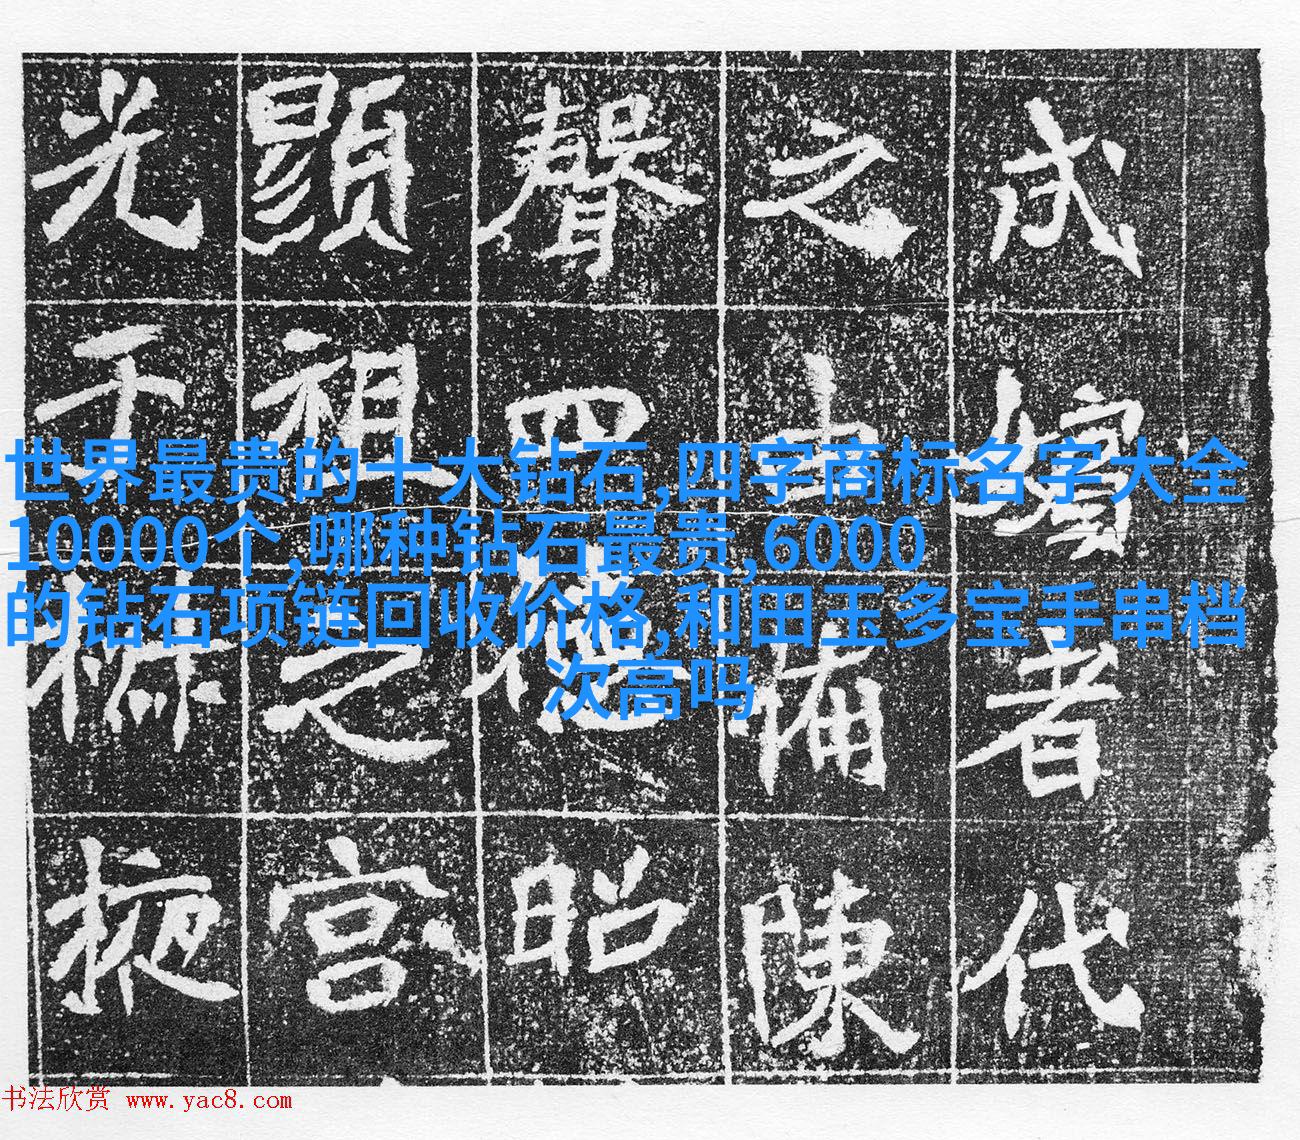 世界最贵的十大钻石,四字商标名字大全
10000个,哪种钻石最贵,6000
的钻石项链回收价格,和田玉多宝手串档
次高吗
者代
之備陳
聲四德昭
顯祖之宮
光于椒掖
书法欣赏 www.yac8.com